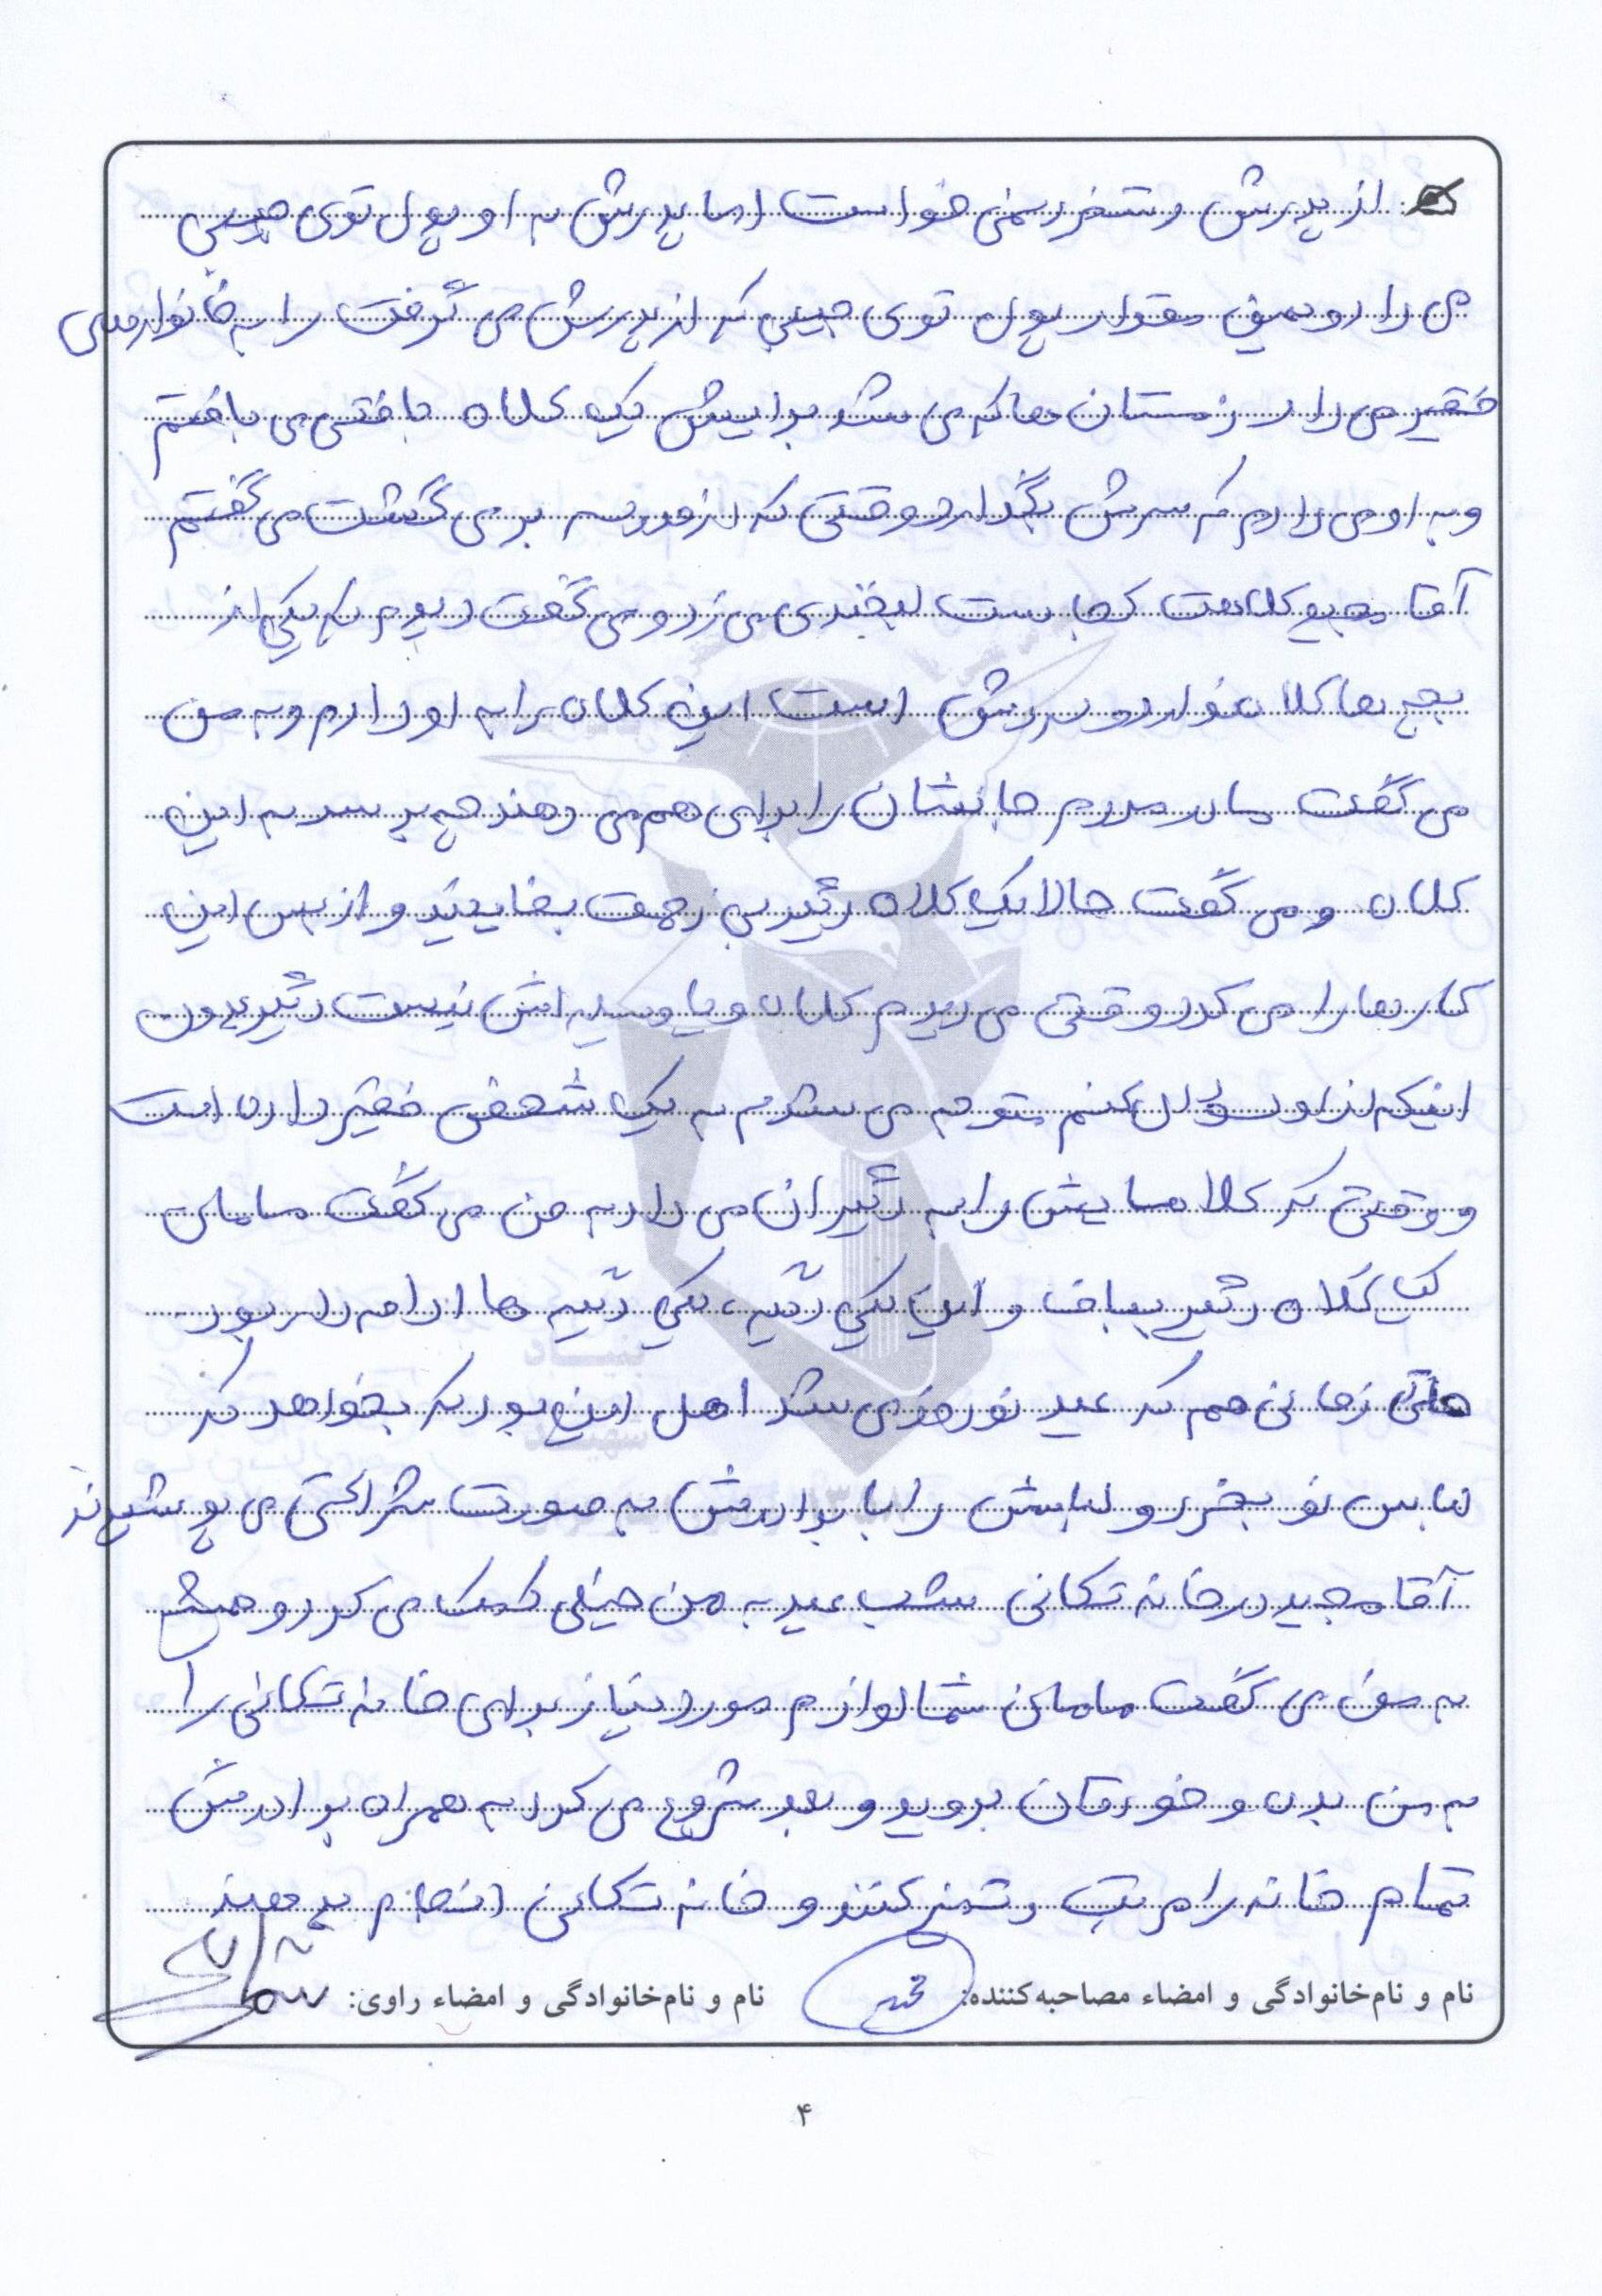 از پدرش دستمزد نمی خواست اما پدرش به او پول توی جیبی
می داد و همین مقدار پول توی جیبی که از پدرش می گرفت را به خانواده های
فقیر می داد زمستان ها که می شد برایش یک کلاه بافتنی می بافتم
و به او می دادم که سرش بگذارد وقتی که از مدرسه بر می گشت می گفتم
آقا مجید کلاهت کجاست لبخندی می زد و می گفت دیدم که یکی از
بچه ها کلاه ندارد و سردش است این کلاه را به او دادم و به من
می گفت مادر مردم جانشان را برای هم می دهند چه برسد به این
کلاه و می گفت حالا یک کلاه دیگر بی زحمت ببافید و از بس این
کارها را می کرد وقتی می دیدم کلاه و یا وسیله اش نیست دیگر بدون
اینکه از او سؤال کنم متوجه می شدم به یک شخص فقیر داده است
و وقتی که کلاهایش را به دیگران می داد به من می گفت مامان
یک کلاه دیگر بباف و این یکی دیگه، یکی دیگه ها ادامه دار بود
حتی زمانی هم که عید نوروز می شد اهل این نبود که بخواهد که
لباس نو بخرد و لباسش را با برادرش به صورت شراکتی می پوشیدند
آقا مجید در خانه تکانی شب عید به من خیلی کمک می کرد و همیشه
به من می گفت مامان شما لوازم مورد نیاز برای خانه تکانی را
به من بده و خودتان بروید و بعد شروع می کرد به همراه برادرش
تمام خانه را مرتب و تمیز کنند و خانه تکانی انجام بدهند
نام و نام‌خانوادگی و امضاء مصاحبه‌کننده: نام و نام‌خانوادگی و امضاء راوی:
۴